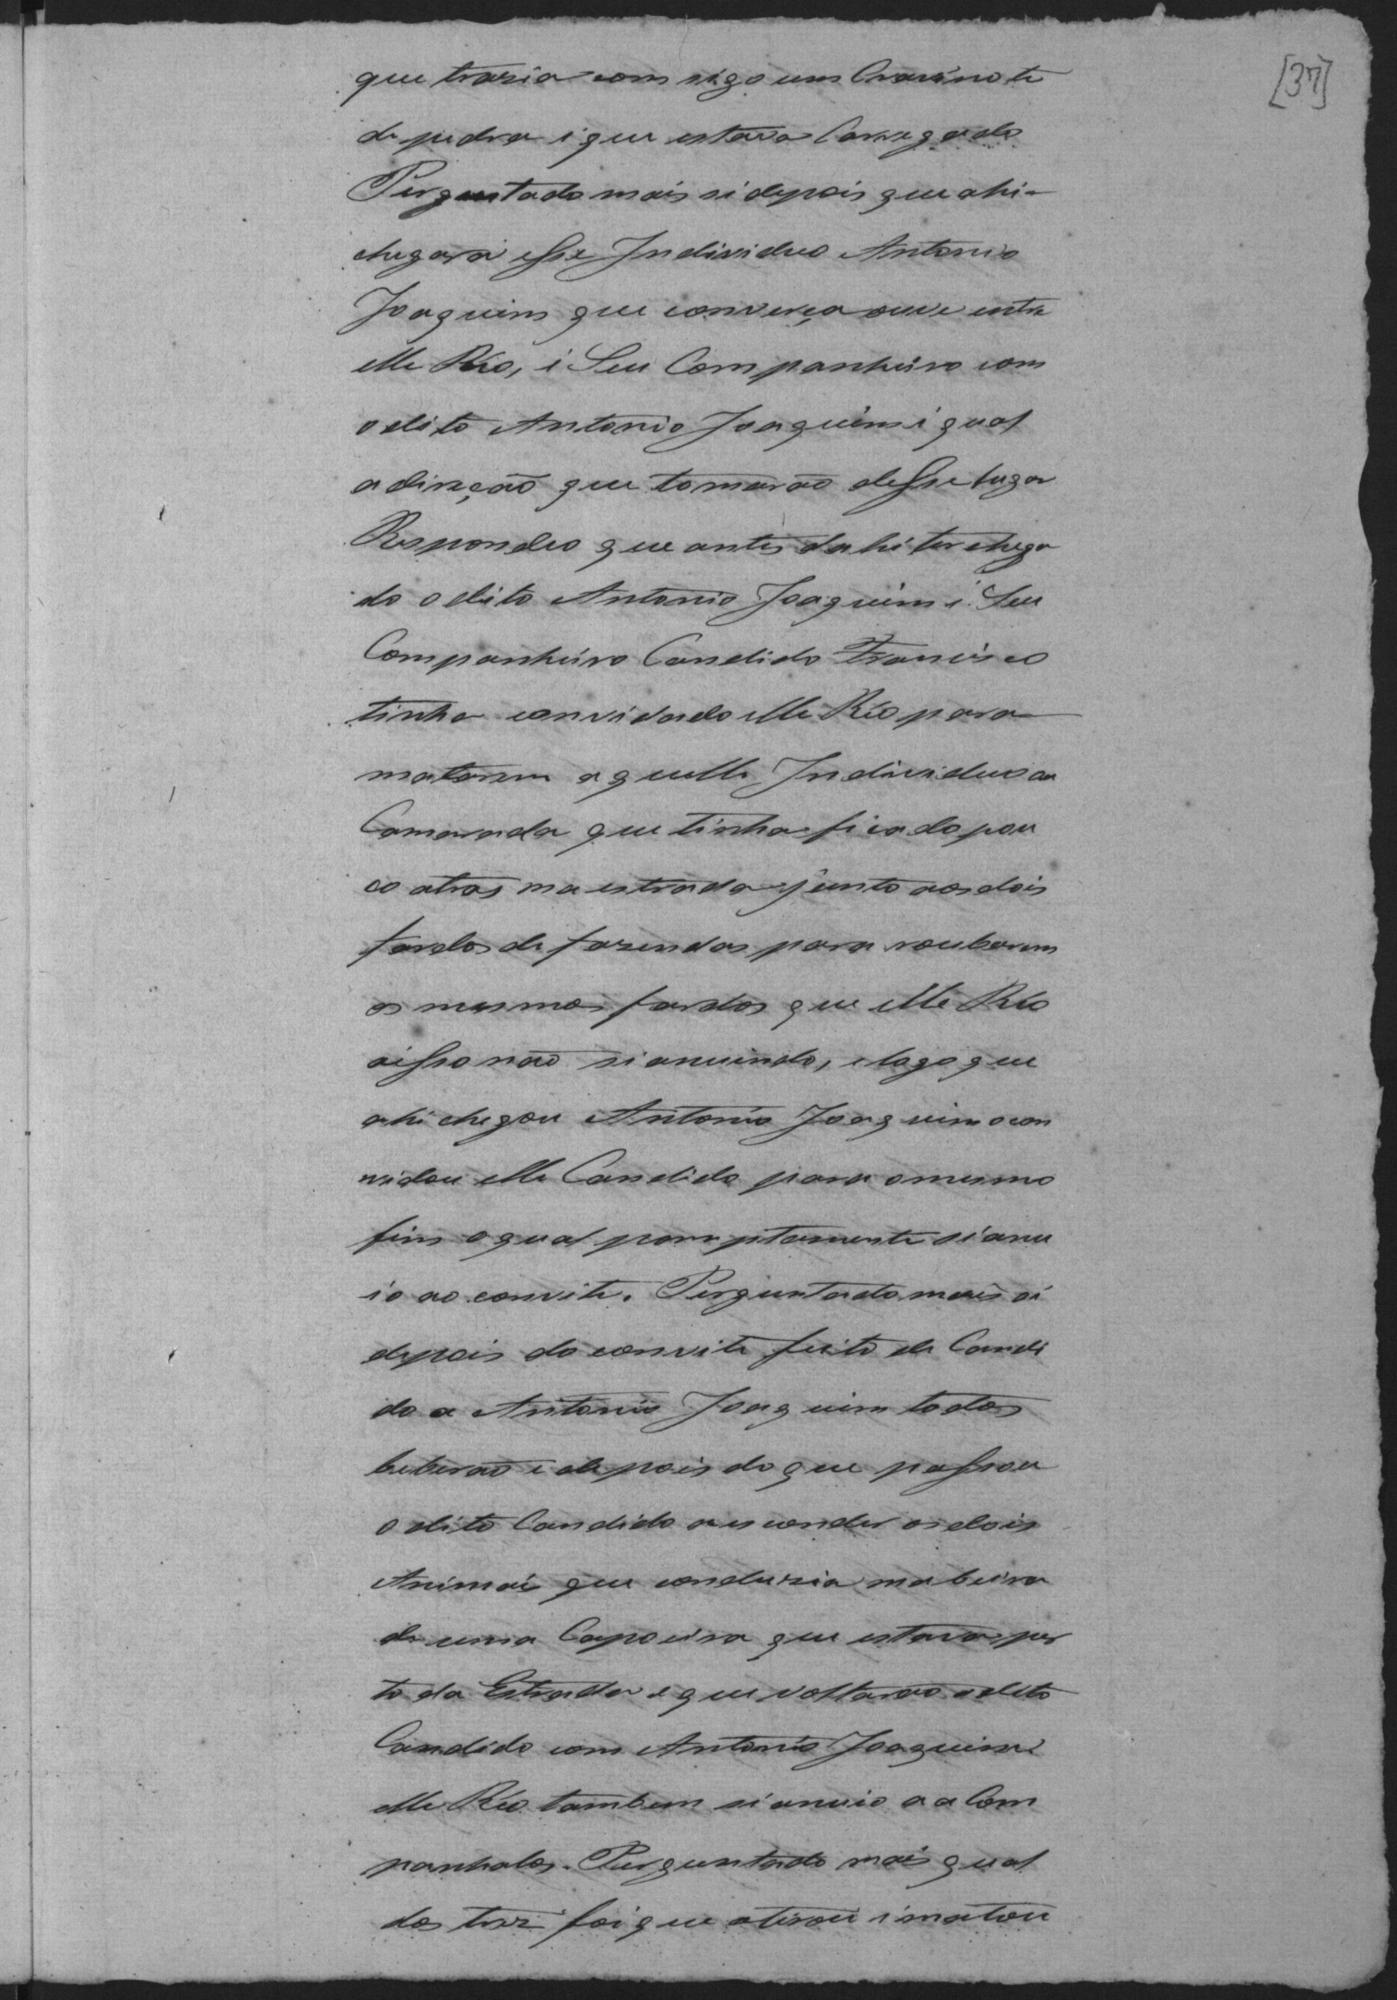 [37]
que trasia com sigo um Cravinote
de pedra i que estava Carregado
Perguntado mais si depois que ahi
chegara esse Individuo Antonio
Joaquim que converça ouve entre
elle Réo, i Seu Companheiro com
o dito Antonio Joaquim i qual
a direção que tomarão desse lugar
Respondeo que antes dahi ter chega
do o dito Antonio Joaquim i Seu
Companheiro Candido Francisco
tinha convidado elle Réo para
matarem aquelle Individuo ou
Camarada que tinha ficado pou
co atras na estrada junto aos dois
fardos de fazendas para roubarem
os mesmos fardos que elle Réo
aisso não si anuindo, e logo que
ahi chegou Antonio Joaquim o con
vidou elle Candido para o mesmo
fim o qual promptamente si anu
io ao convite. Perguntado mais si
depois do convite feito de Candi
do a Antonio Joaquim todos
beberão i depois do que passou
o dito Candido a esconder os dois
Animai que condusia na beira
de uma Capoeira que estava per
to da Estrada e que voltarão o dito
Candido com Antonio Joaquim i
elle Réo tambem si anuio a a Com
panhalos. Perguntado mais qual
dos trez foi que atirou i matou